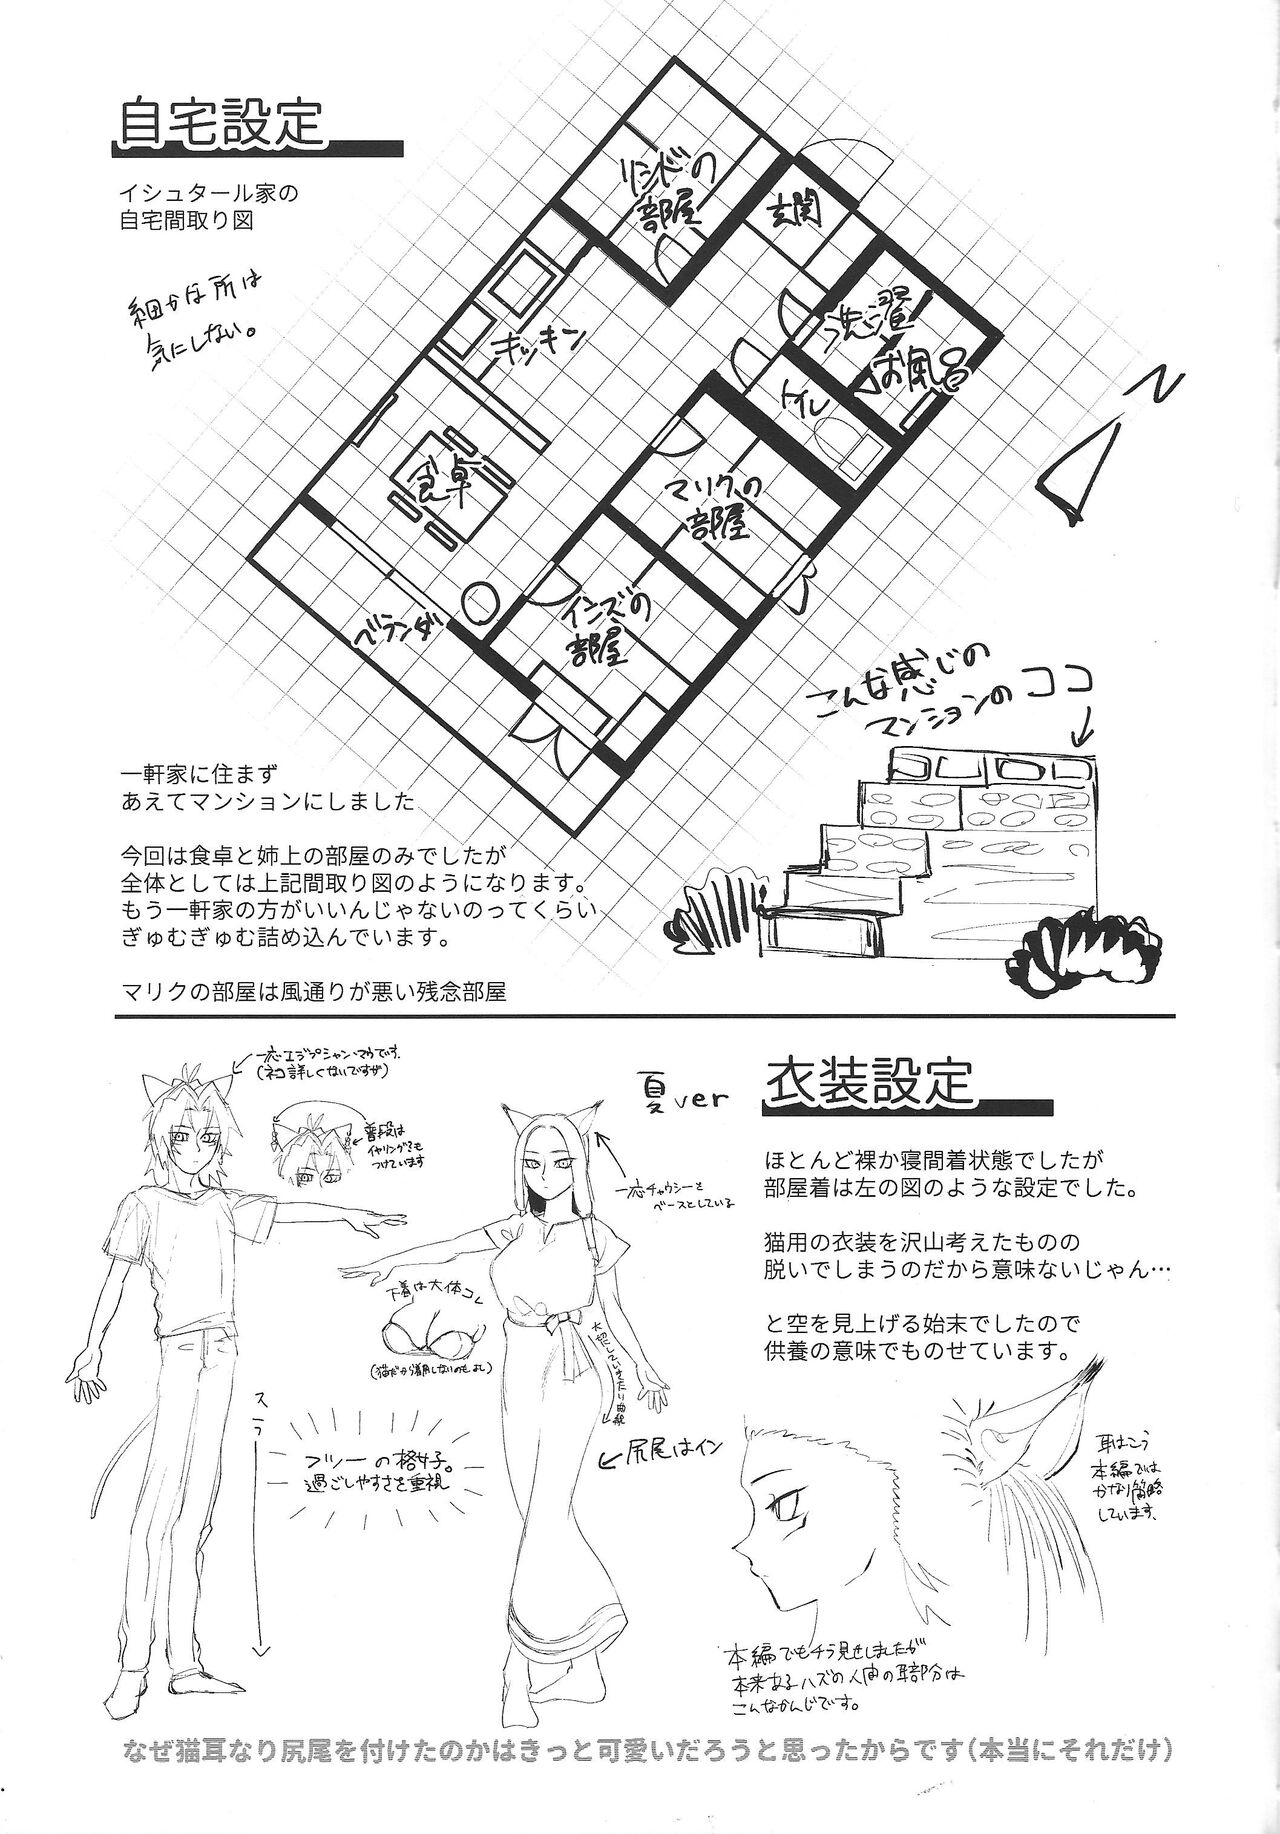 自宅設定
イシュタール家の
自宅間取り図
細かな所は
気にしない。
リシドの
部屋
玄関
洗濯
お風呂
キッチン
トイレ
食卓
マリクの
部屋
イシズの
部屋
ベランダ
N
こんな感じの
マンションのココ
一軒家に住まず
あえてマンションにしました
今回は食卓と姉上の部屋のみでしたが
全体としては上記間取り図のようになります。
もう一軒家の方がいいんじゃないのってくらい
ぎゅむぎゅむ詰め込んでいます。
マリクの部屋は風通りが悪い残念部屋
衣装設定
夏ver
ほとんど裸か寝間着状態でしたが
部屋着は左の図のような設定でした。
猫用の衣装を沢山考えたものの
脱いでしまうのだから意味ないじゃん…
と空を見上げる始末でしたので
供養の意味でものせています。
一応エジプシャンマウです。
(ネコ詳しくないですが)
普段は
イヤリングも
つけています
一応チャウシーを
ベースとしている
下着は大体コレ
(猫だから着用しないのもよし)
大切にしていきたい曲線
スラー
フツーの格好。
過ごしやすさを重視
尻尾はイン
耳はこう
本編では
かなり簡略
しています。
本編でもチラ見せしましたが
本来あるハズの人間の耳部分は
こんなかんじです。
なぜ猫耳なり尻尾を付けたのかはきっと可愛いだろうと思ったからです(本当にそれだけ)